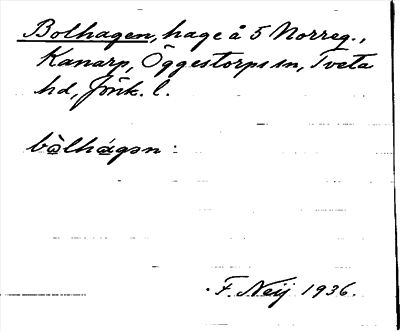 Bolhagen, hage å 5 Norreg.,
Kanarp, Öggestorps sn, Tveta
hd, Jönk. l.
bòlhágən :
F. Neij 1936.